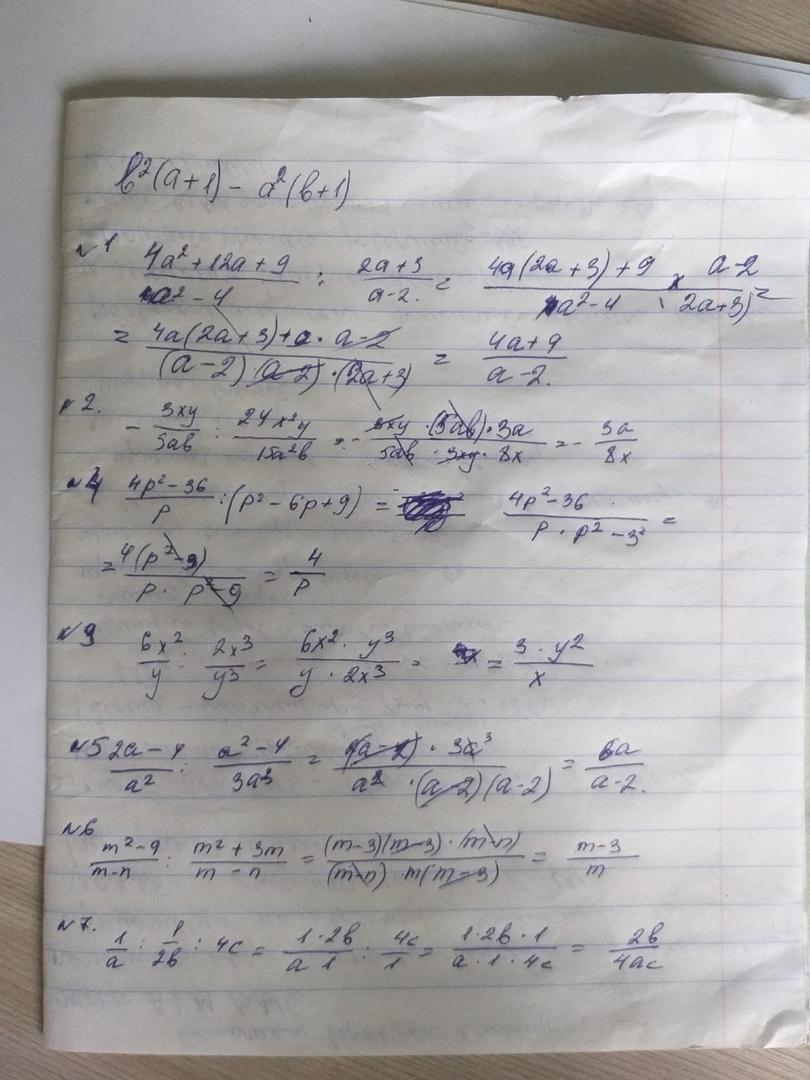 в²(a+1) - a²(в+1)
№1 (4a² + 12a + 9)/(a² - 4) : (2a+3)/(a-2) = (4a(2a+3)+9)/(a²-4) × (a-2)/(2a+3) =
= (4a(2a+3)+a · a-2)/((a-2)(a-2) · (2a+3)) = (4a+9)/(a-2).
№2. - 3xy/5ab : 24x²y/15a²b = - (3xy · (5ab) · 3a)/(5ab · 3xy · 8x) = - 3a/8x
№4 (4p²-36)/p : (p² - 6p + 9) = (4p²-36)/(p · p² - 3²) =
= 4(p²-9)/(p · p²-9) = 4/p
№9 6x²/y : 2x³/y³ = (6x² · y³)/(y · 2x³) = = (3 · y²)/x
№5 (2a-4)/a² : (a²-4)/3a³ = ((a-2) · 3a³)/(a² · (a-2)(a-2)) = 6a/(a-2).
№6 (m²-9)/(m-n) : (m²+3m)/(m-n) = ((m-3)(m-3) · (m-n))/((m-n) m(m-3)) = (m-3)/m
№7. 1/a : 1/2в : 4c = (1·2в)/(a 1) : 4c/1 = (1·2в·1)/(a·1·4c) = 2в/4ac